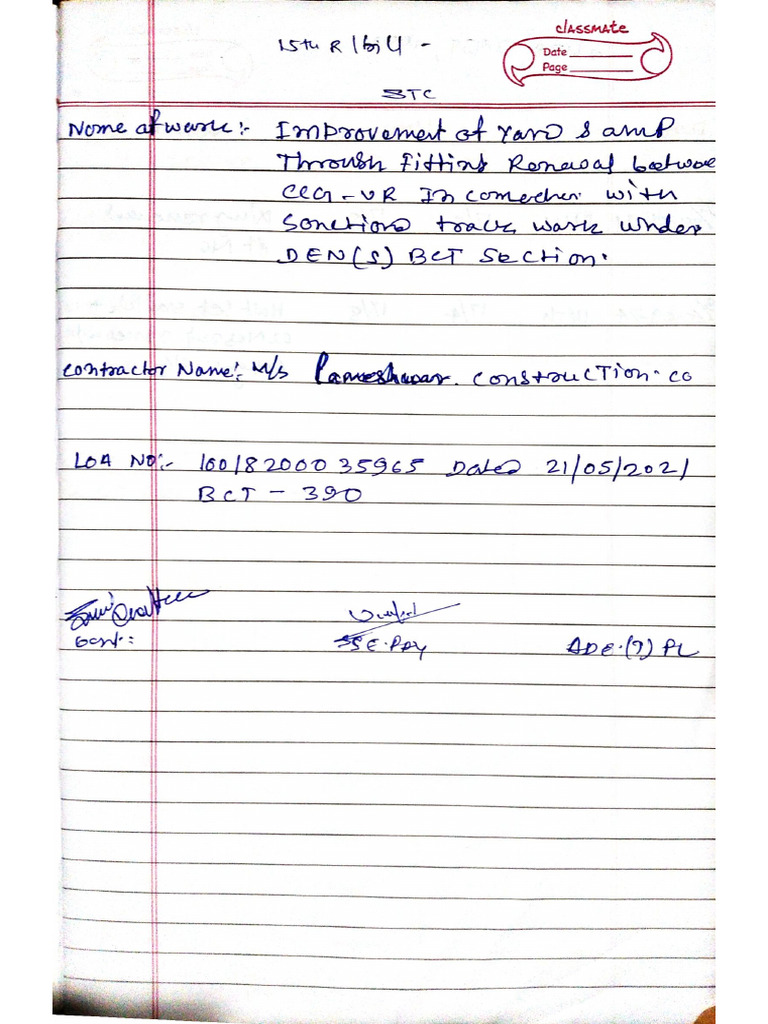 15th R/bill -
classmate
Date
Page
STC
Name of work:- Improvement of Yard & amp
Through Fitting Renewal between
CCG - VR In connection with
Sanctions track work under
DEN(S) BCT Section.
Contractor Name:- M/s Parmeshwar. Construction. co
LOA NO:- 100/82000 35965 Dated 21/05/2021
BCT - 390
Cont:
SSE. PWY
ADE. (T) PL